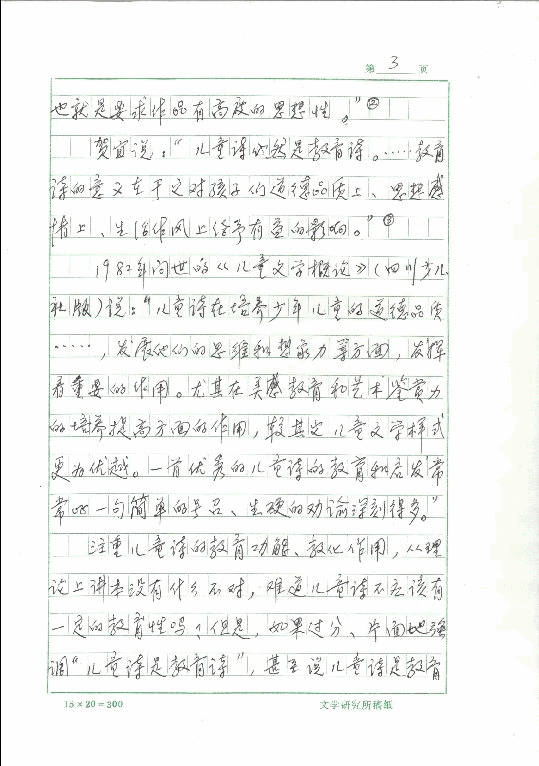 第 3 页
也就是要求作品有高度的思想性。”②
贺宜说:“儿童诗仍然是教育诗。……教育
诗的意义在于它对孩子们道德品质上、思想感
情上、生活作风上给予有益的影响。”③
1982年问世的《儿童文学概论》(四川少儿
社版)说:“儿童诗在培养少年儿童的道德品质
……,发展他们的思维和想象力等方面,发挥
着重要的作用。尤其在美感教育和艺术鉴赏力
的培养提高方面的作用,较其它儿童文学样式
更为优越。一首优秀的儿童诗的教育和启发常
常比一句简单的号召、生硬的劝谕深刻得多。”
注重儿童诗的教育功能、教化作用,从理
论上讲本没有什么不对,难道儿童诗不应该有
一定的教育性吗?但是,如果过分、片面地强
调“儿童诗是教育诗”,甚至说儿童诗是教育
15×20=300 文学研究所稿纸